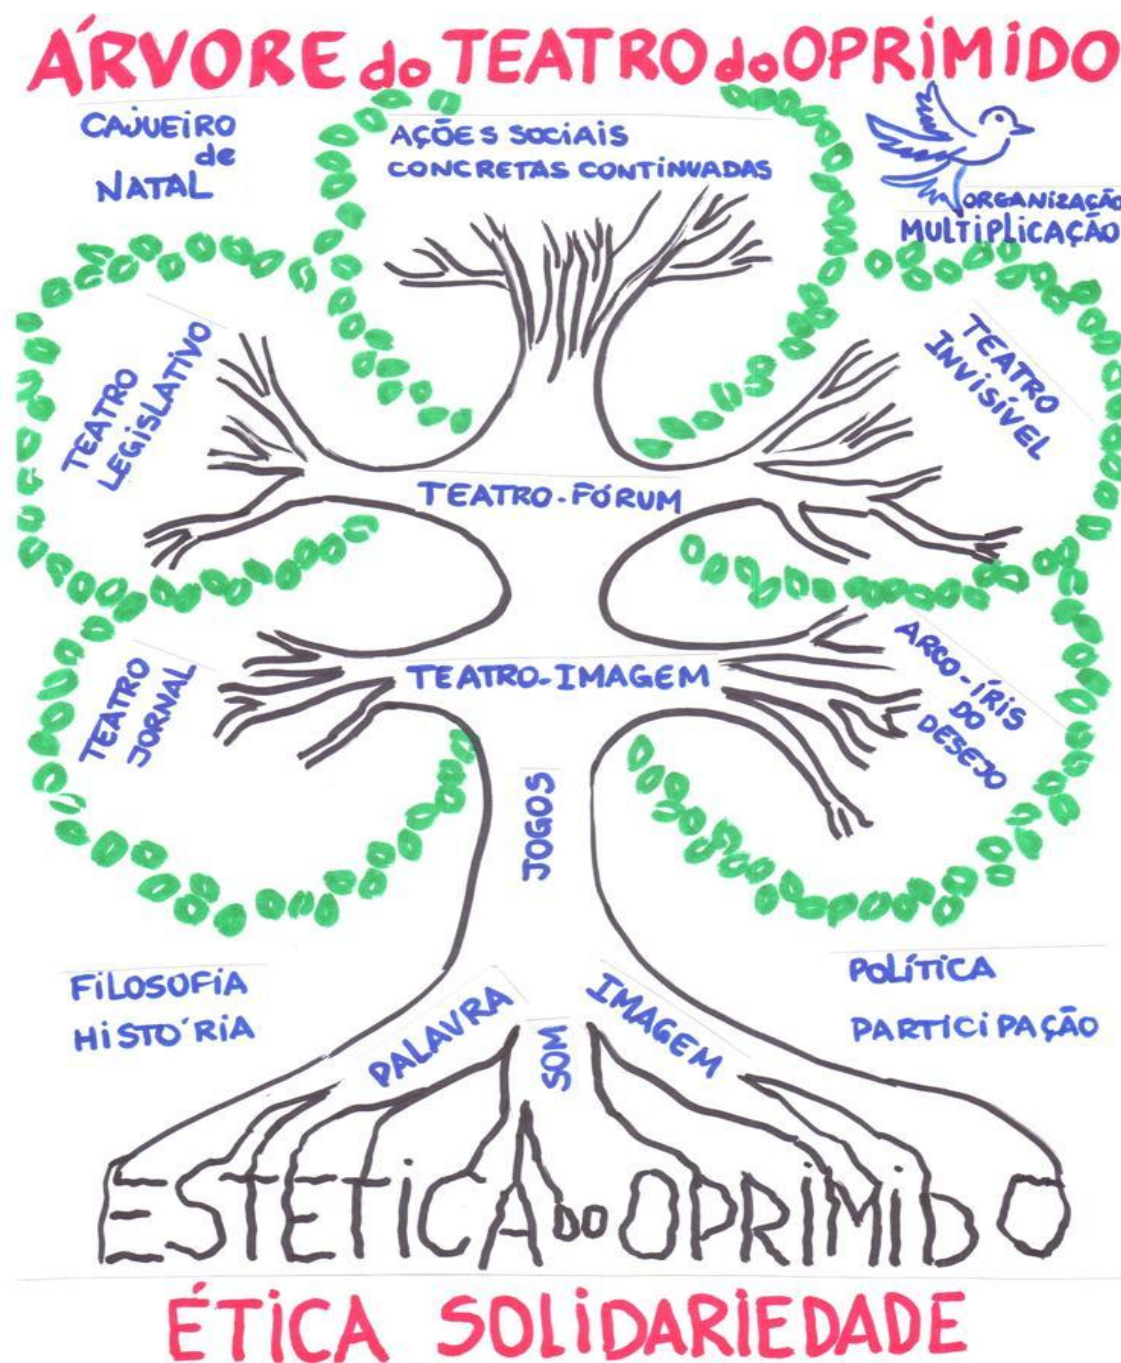 ÁRVORE do TEATRO do OPRiMiDO
CAJUEiRO
de
NATAL
AÇÕES SOCiAiS
CONCRETAS CONTiNUADAS
ORGANiZAÇÃO
MULTiPLiCAÇÃO
TEATRO
LEGiSLATiVO
TEATRO
INViSÍVEL
TEATRO-FÓRUM
TEATRO
JORNAL
TEATRO-IMAGEM
ARCO-ÍRiS
DO
DESEJO
JOGOS
FiLOSOFiA
HiSTÓRiA
PALAVRA
SOM
IMAGEM
POLÍTiCA
PARTiCiPAÇÃO
ESTETiCA DO OPRiMiDO
ÉTiCA SOLiDARiEDADE